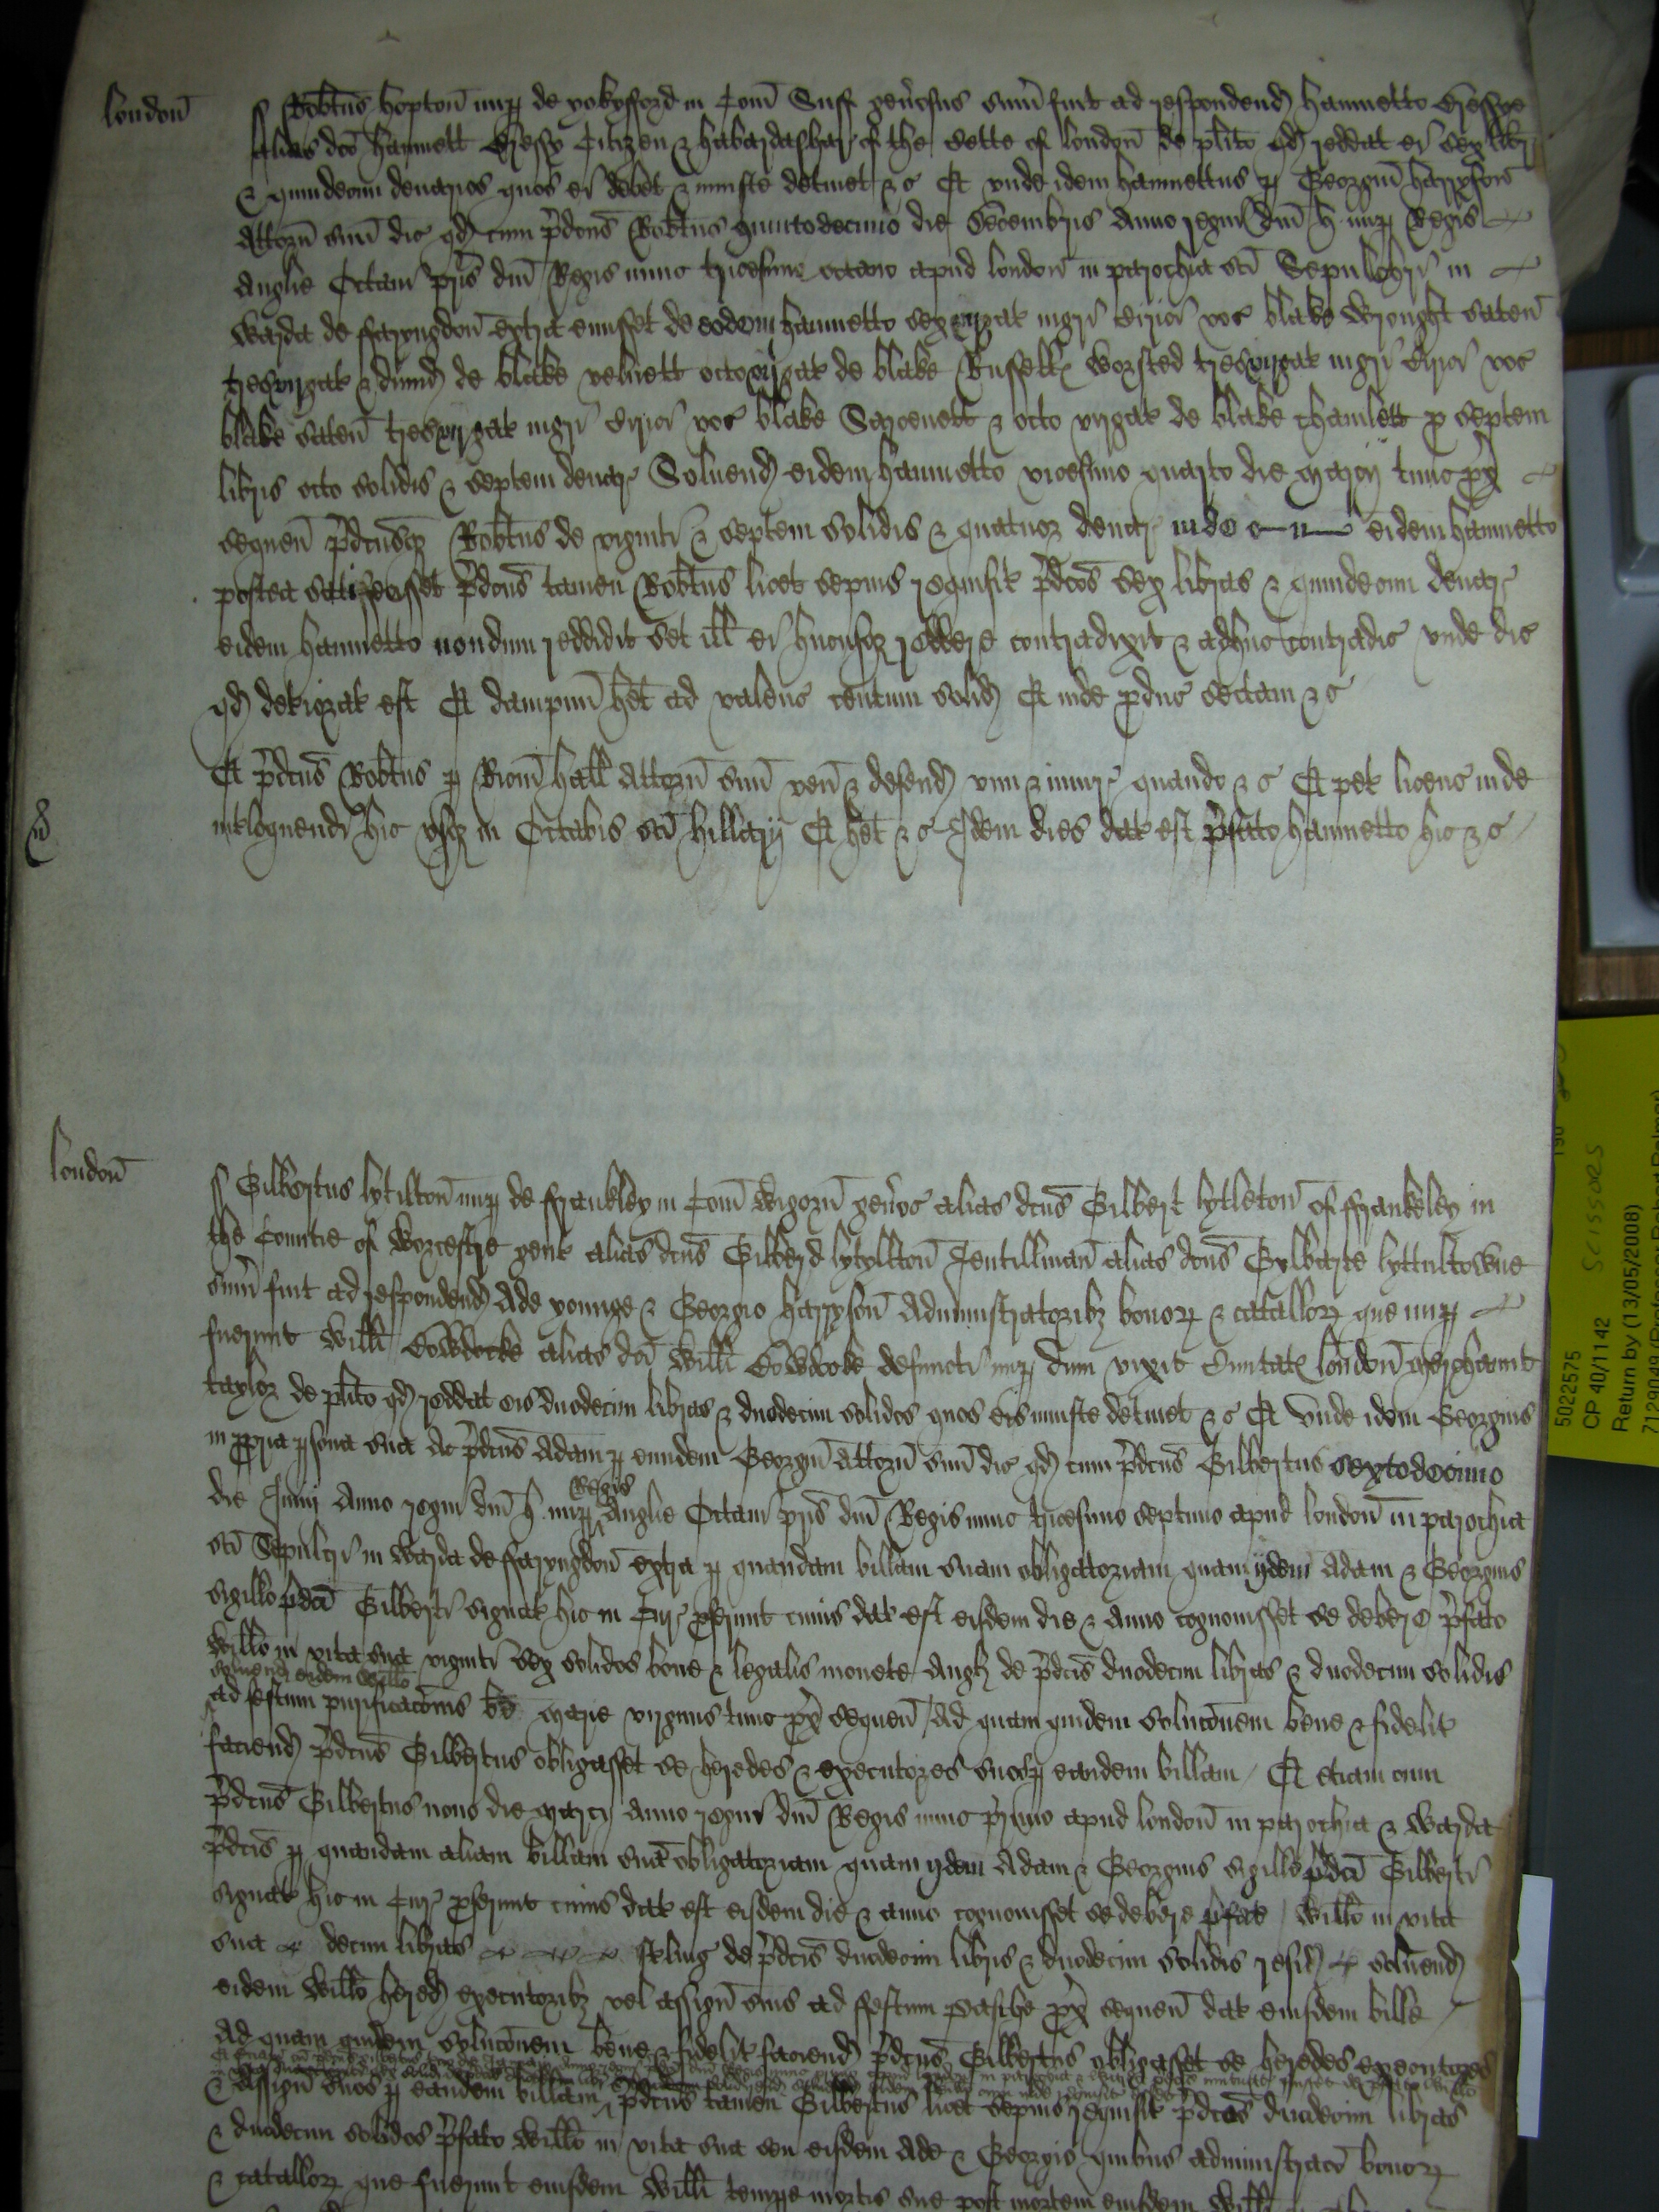 london̄
Rob̄tus hopton̄ nup de yoxfford in Com̄ Suff gen̄osus sum̄ fuit ad respondend hamnetto
alias dc̄s hamnett Citizen & haberdassher of the Cette of london̄ de pl̄ito qd reddat ei sex libr
& quindecim denarios quos ei debet & iniuste detinet &c Et vnde idem hamnettus p Georgiū harryson̄
Attorn̄ suū dic qd cum p̄dcus Rob̄tus quintodecimo die Decembris Anno regni dn̄i h nup Regis
Anglie Octaui pr̄is dn̄i Regis nunc tricesimo octauo apud london̄ in parochia sc̄i Sepulchri in
warda de ffaryngdon̄ extra emisset de eodem hamnetto sex virgat nigri voc blake wrought saten̄
tres virgat & dimid de blake veluett octo virgat de blake Russelle worsted tres virgat nigri voc
blake saten̄ tres virgat nigri voc blake Sarcenett & octo virgat de blake chamlett p septem
libris octo solidis & septem denar Soluend eidem hamnetto vicesimo quarto die marcij tunc px̄
sequen̄ p̄dcusq Rob̄tus de viginti & septem solidis & quatuor denar inde eidem hamnetto
postea satisfecisset p̄dcus tamen Rob̄tus licet sepius requisit p̄dcas sex libras & quindecim denar
eidem hamnetto nondum reddidit set ill ei hucusq reddere contradixit & adhuc contradic vnde dic
qd deteriorat est Et dampnū het ad valenc centum solid Et inde pduc sectam &c
Et p̄dcus Rob̄tus p Ricm̄ hall Attorn̄ suū ven̄ & defend vim & iniur quando &c Et pet licenc inde
int̄loquendi hic vsq in Octabis sc̄i hillarij Et het &c Idem dies dat est p̄fato hamnetto hic &c
london̄
Gilbertus lytilton̄ nup de ffrankley in Com̄ Wigorn̄ gen̄os alias dcus Gilbert lytleton̄ of ffrankeley in
the Countie of worcestre gent alias dcus Gilberd lytyllton̄ Jentillman̄ alias dcus Gylbarte lyttultowne
sum̄ fuit ad respondend Ade younge & Georgio harryson̄ Administratoribz bonor & catallor que nup
fuerunt Willi alias dc̄i Willi defuncti nup dum vixit Ciuitat london̄ merchaunt
taylor de pl̄ito qd reddat eis duodecim libras & duodecim solidos quos eis iniuste detinet &c Et vnde idem Georgius
in ppria psona sua ac p̄dcus Adam p eundem Georgiū Attorn̄ suū dic qd cum p̄dcus Gilbertus sextodecimo
die Junij Anno regni dn̄i h nup Regis Anglie Octaui pr̄is dn̄i Regis nunc tricesimo septimo apud london̄ in parochia
sc̄i Sepulcri in warda de ffaryngdon̄ extra p quandam billam suam obligatoriam quam ijdem Adam & Georgius
sigillo pdc̄i Gilberti signat hic in Cur pferunt cuius dat est eisdem die & Anno cognouisset se debere p̄fato
Willo in vita sua viginti sex solidos bone & legalis monete Angl de p̄dcis duodecim libras & duodecim solidis
soluend eidem Willo
ad festum purificac̄onis be marie virginis tunc px̄ sequen̄ Ad quam quidem soluc̄onem bene & fidelit
faciend p̄dcus Gilbertus obligasset se heredes & executores suos p eandem billam Et etiam cum
p̄dcus Gilbertus nono die marcij Anno regni dn̄i Regis nunc primo apud london̄ in parochia & warda
p̄dcis p quandam aliam billam suā obligatoriam quam ijdem Adam & Georgius sigillo pdc̄i Gilberti
signat hic in Cur pferunt cuius dat est eisdem die & anno cognouisset se debere p̄fat Willo in vita
sua decim libras sterling de p̄dcis duodecim libris & duodecim solidis resid soluend
eidem Willo hered executoribz vel assign̄ suis ad ffestum pasche px̄ sequen̄ dat eiusdem bille
Ad quam quidem soluc̄onem bene & fidelit faciend p̄dcus Gilbertus obligasset se heredes executores
& Assign̄ suos p eandem billam p̄dcus tamen Gilbertus licet sepius requisit p̄dcas duodecim libras
& duodecim solidos p̄fato Willo in vita sua seu eisdem Ade & Georgio quibus administrac̄o bonor
& catallor que fuerunt eiusdem Willi tempe mortis sue post mortem eiusdem Willi
5022575
CP 40/1142 SCISSORS
Return by (13/05/2008)